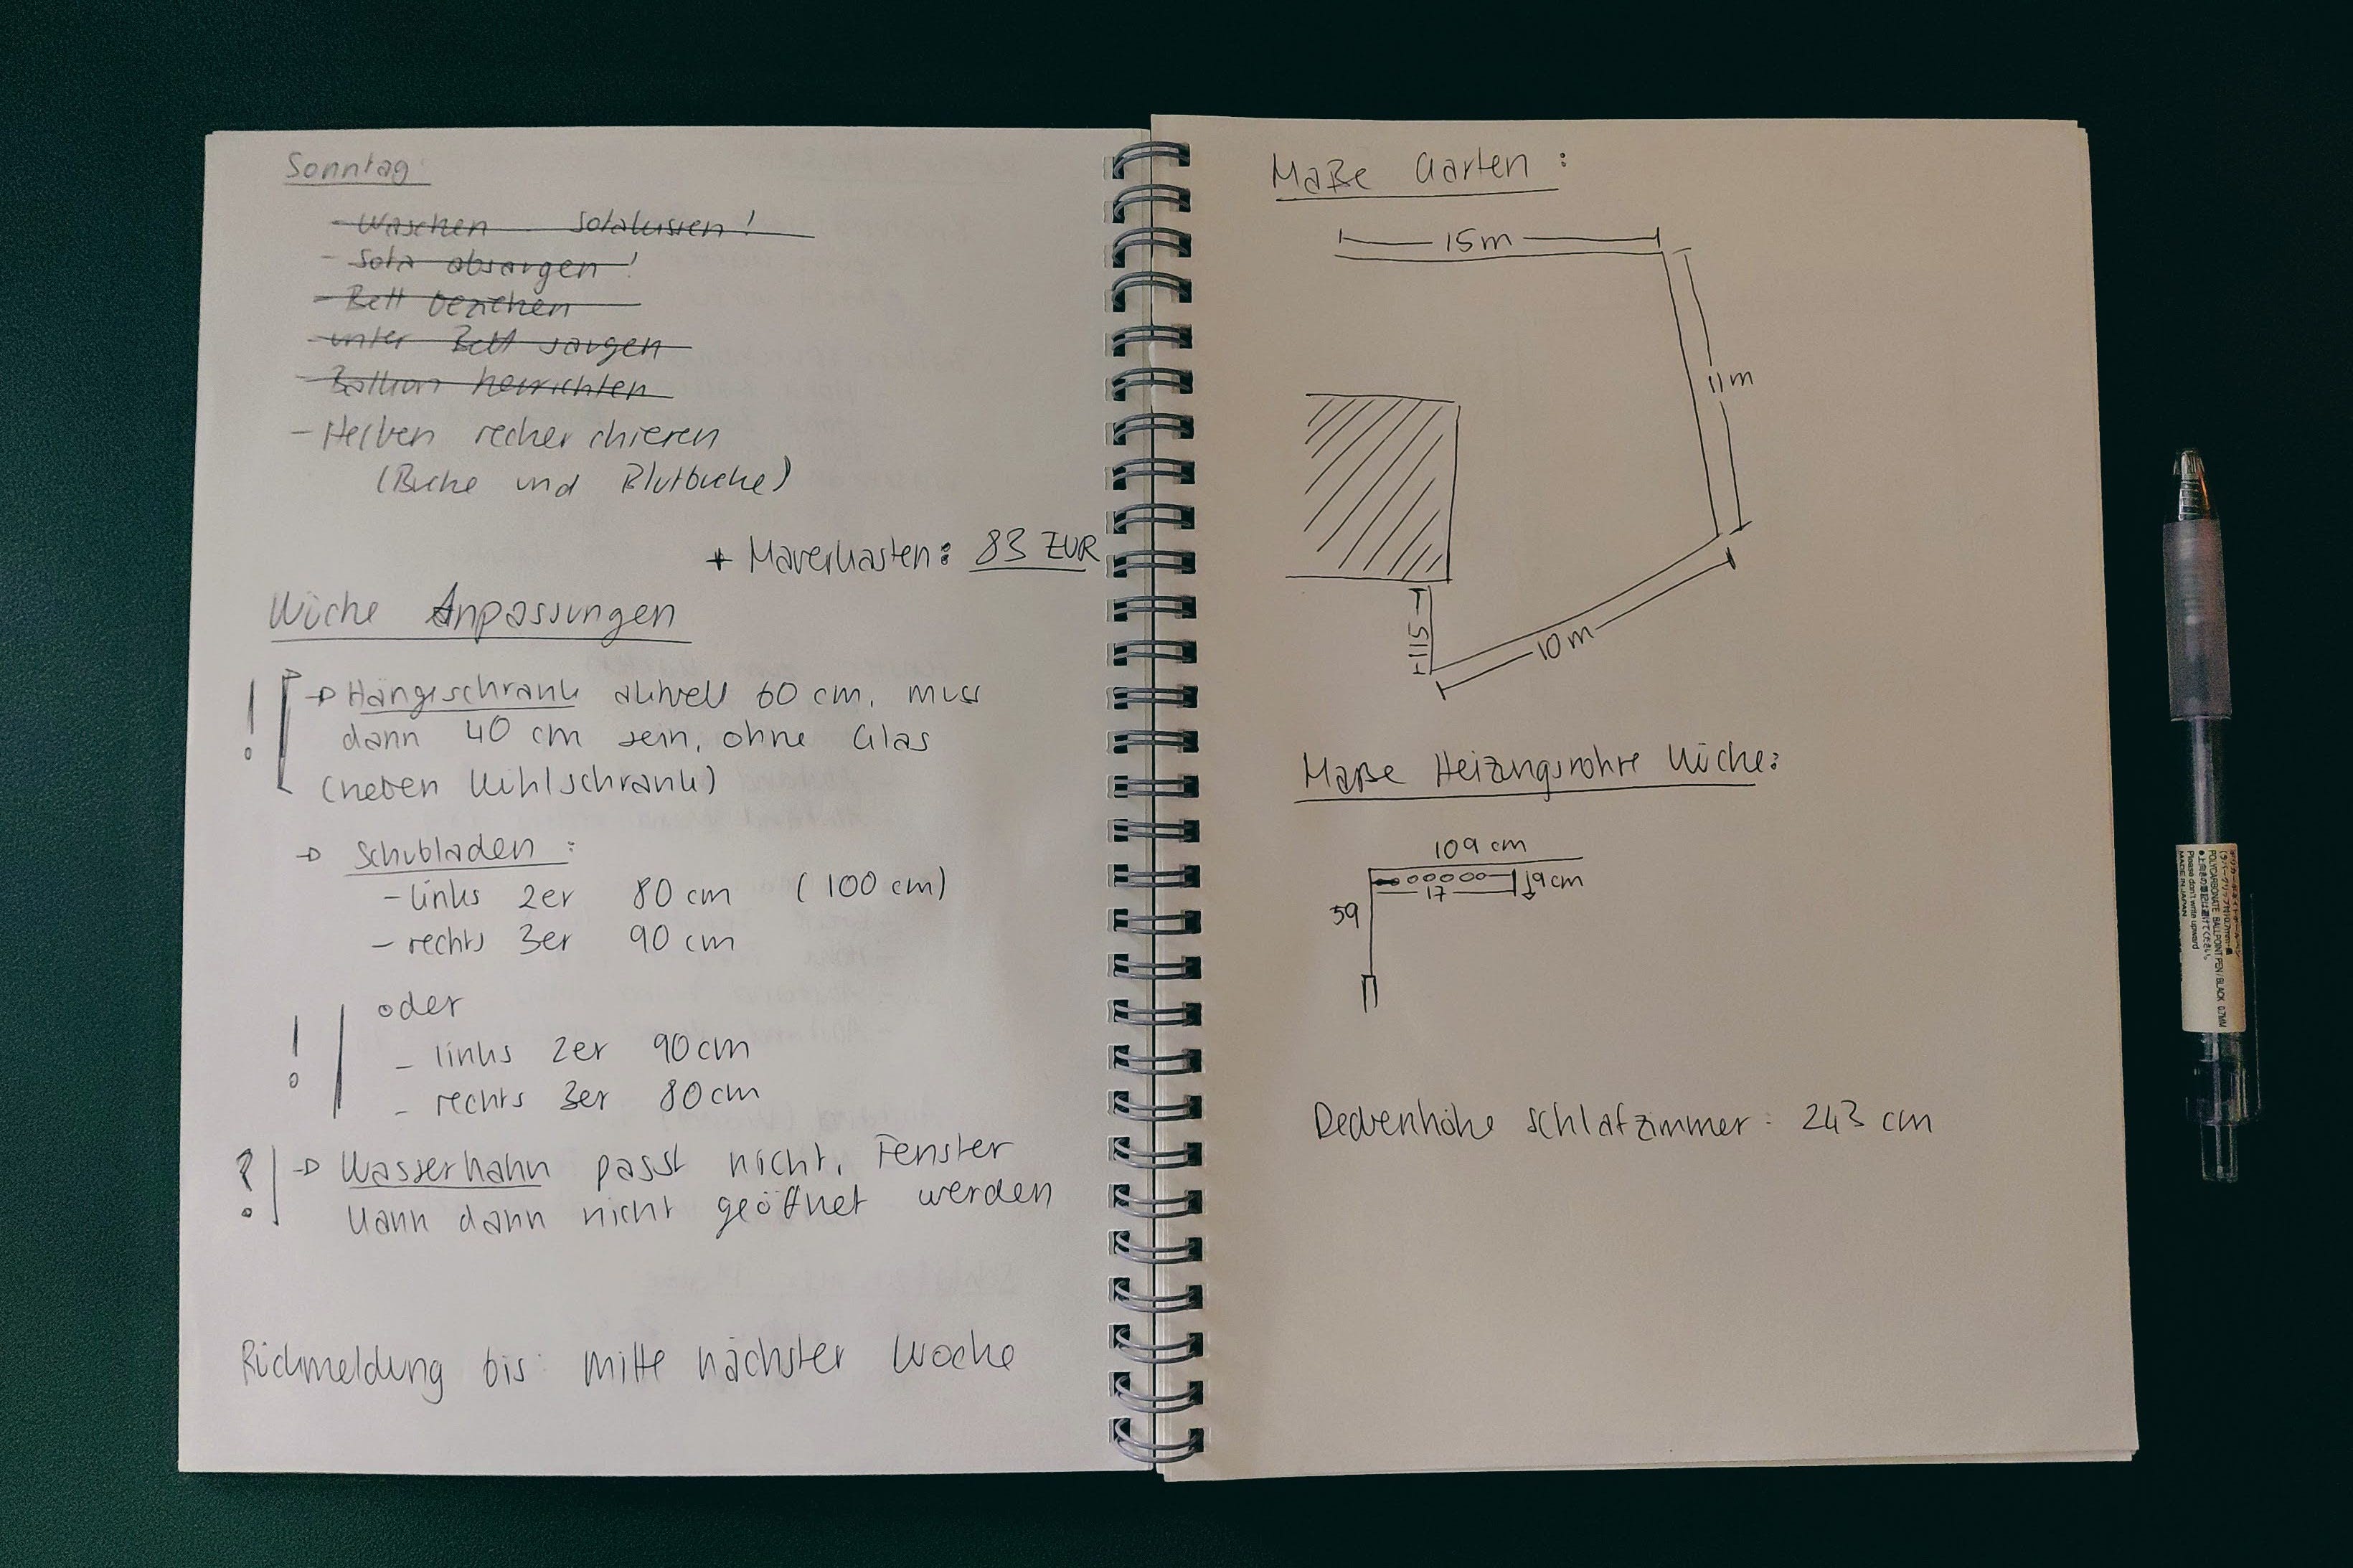 Sonntag:
- Waschen Sofakissen!
- Sofa absaugen!
- Bett beziehen
- unter Bett saugen
- Balkon herrichten
- Hecken recherchieren
(Buche und Blutbuche)
+ Mauerkasten: 83 EUR
Küche Anpassungen
! → Hängeschrank aktuell 60 cm, muss
dann 40 cm sein, ohne Glas
(neben Kühlschrank)
→ Schubladen:
- links 2er 80 cm (100 cm)
- rechts 3er 90 cm
oder
! - links 2er 90 cm
- rechts 3er 80 cm
? → Wasserhahn passt nicht, Fenster
kann dann nicht geöffnet werden
Rückmeldung bis: Mitte nächster Woche
Maße Garten:
15 m
11 m
10 m
Maße Heizungsrohre Küche:
109 cm
9 cm
17
59
Deckenhöhe Schlafzimmer: 243 cm
POLYCARBONATE BALLPOINT PEN/BLACK 0.7MM
Please don't write upward
MADE IN JAPAN